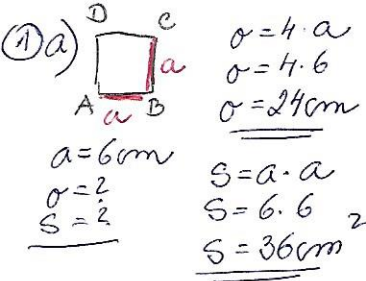 ① a)
D C
a
A B
a
a = 6cm
o = ?
S = ?
o = 4 · a
o = 4 · 6
o = 24cm
S = a · a
S = 6 · 6
S = 36cm²